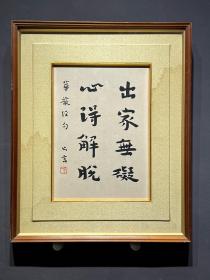 出家無礙
心得解脫
華嚴經句